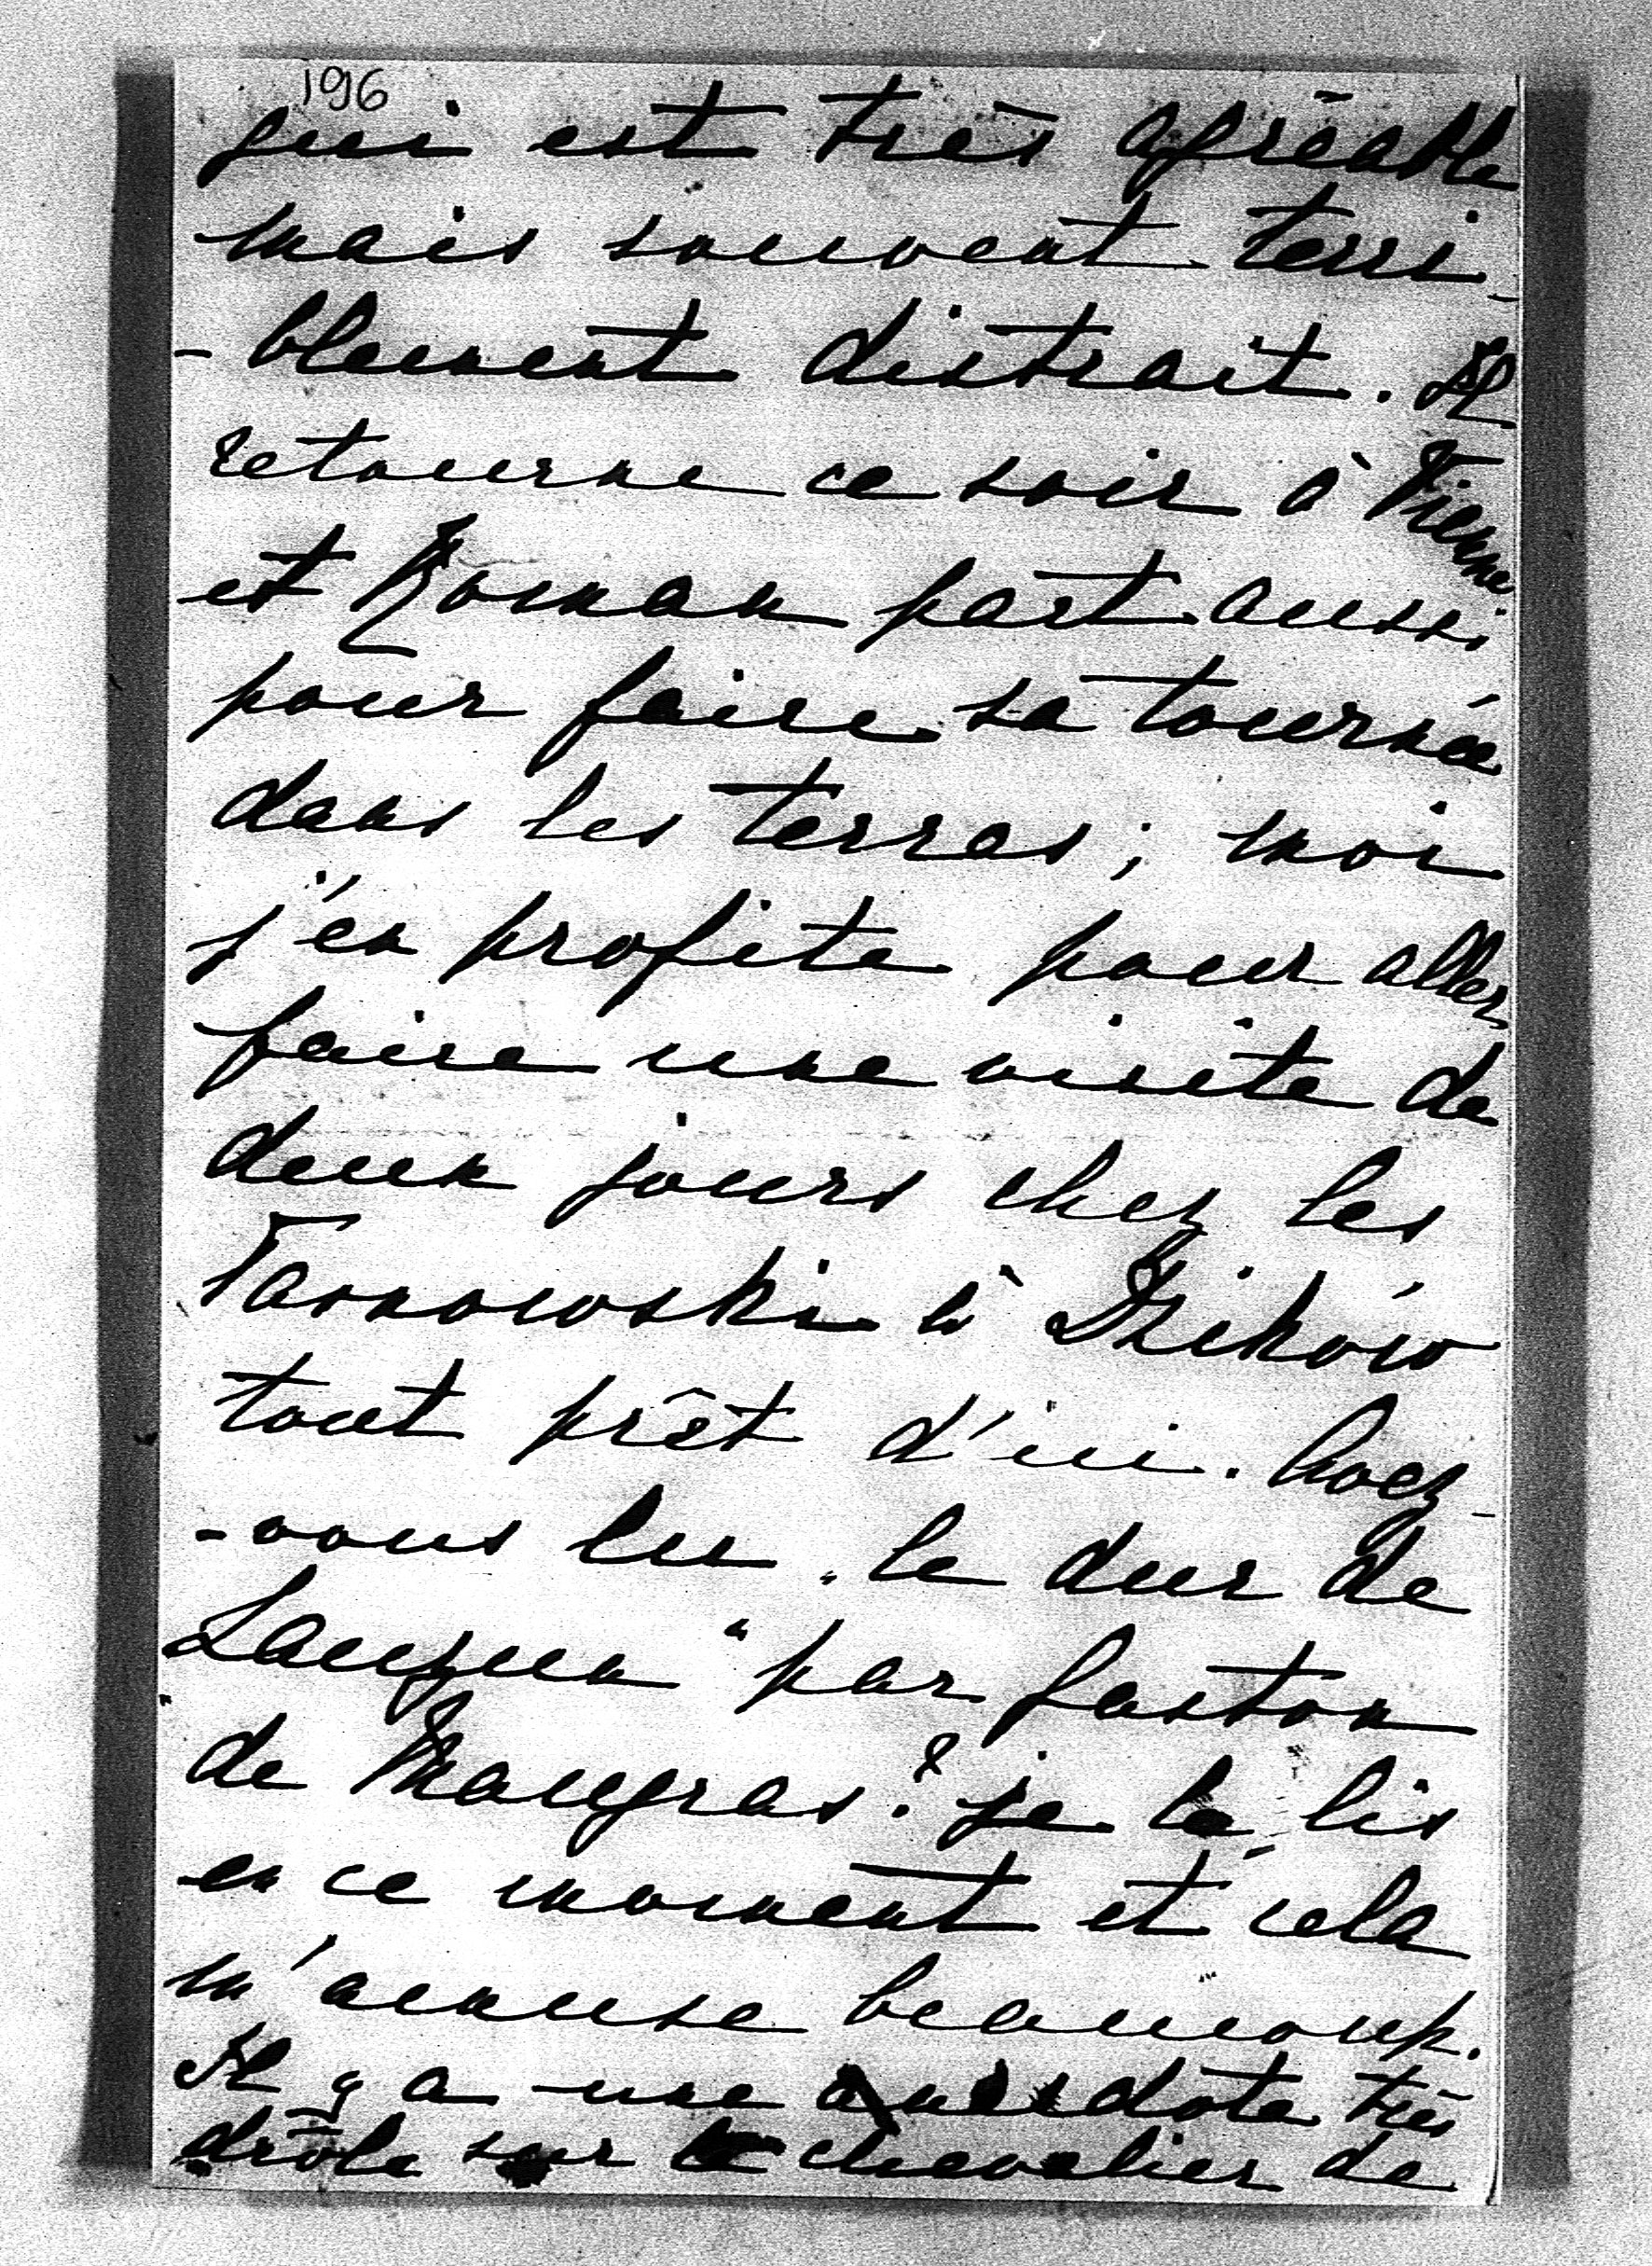 196
qui est très agréable
mais souvent terri-
-blement distrait. Il
retourne ce soir à Vienne
et Roman part aussi
pour faire sa tournée
dans les terres; moi
j'en profite pour aller
faire une visite de
deux jours chez les
Tarnowski à Dzików
tout prêt d'ici. Avez-
-vous lu „le duc de
Lauzun" par Gaston
de Maugras? je le lis
en ce moment et cela
m'amuse beaucoup.
Il y a une anecdote très
drôle sur le chevalier de